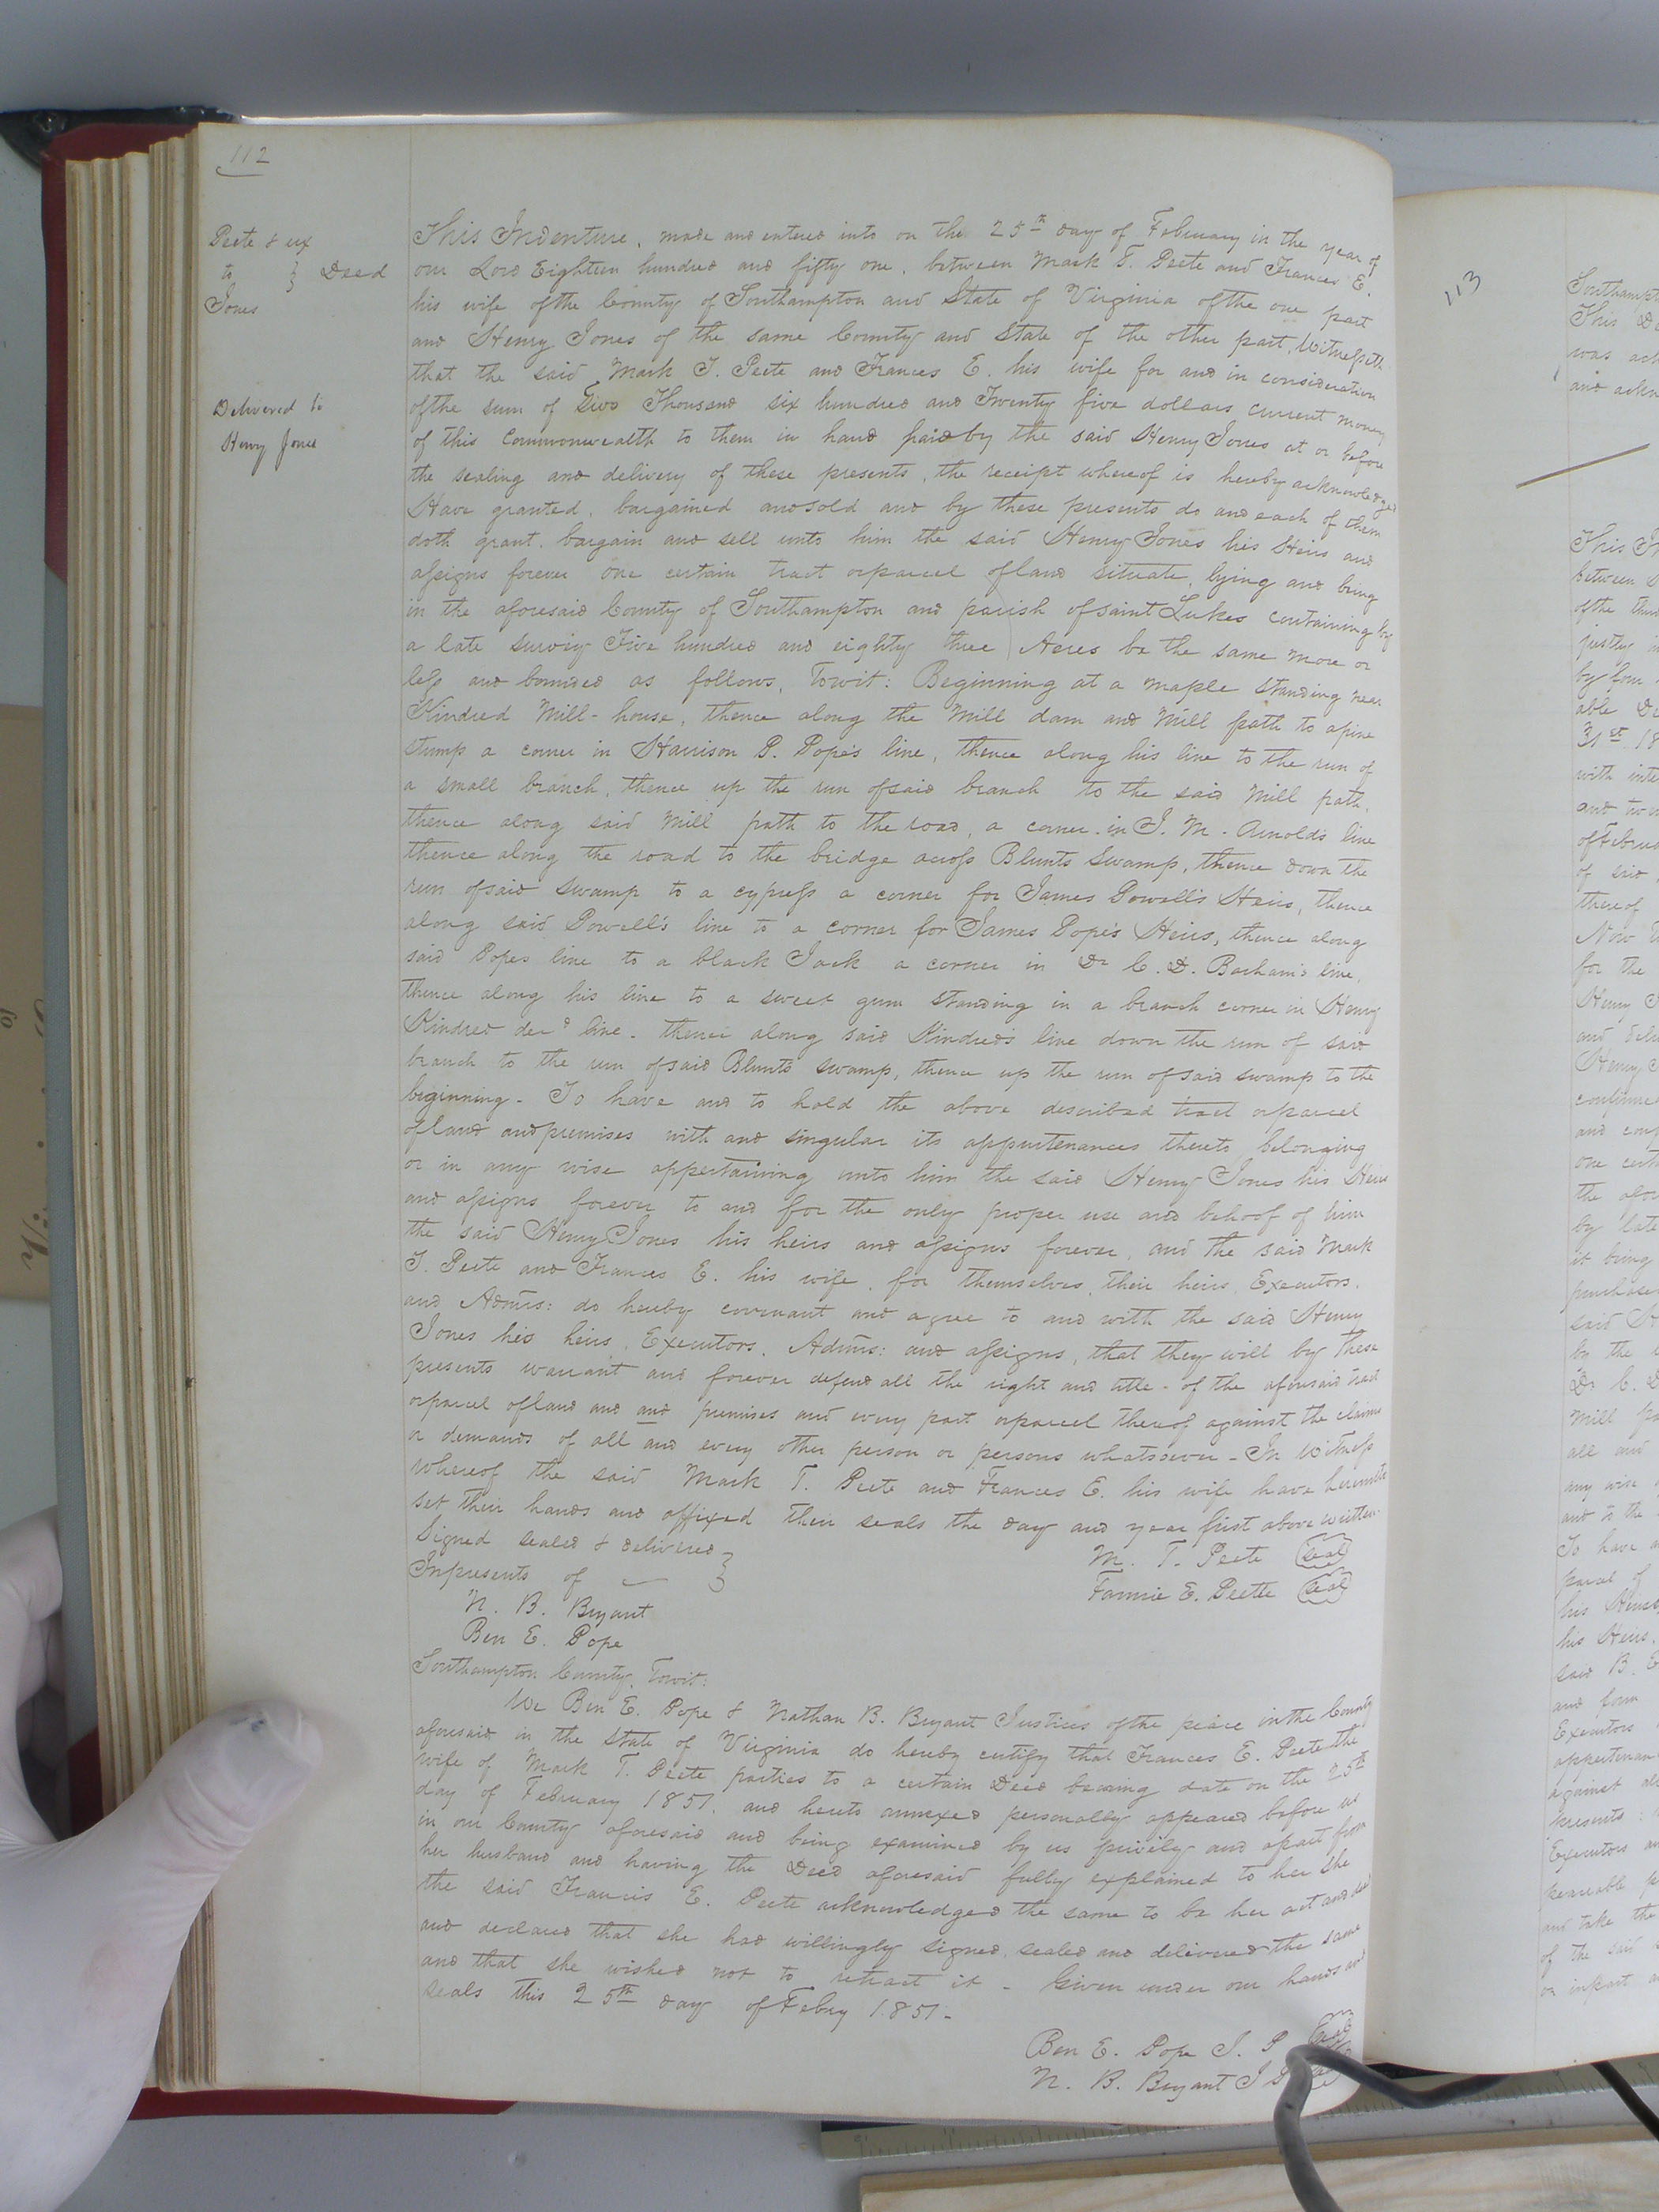 112
Peete & ux
to } Deed
Jones
Delivered to
Henry Jones
This Indenture, made and entered into on the 25th day of February in the year of
our Lord Eighteen hundred and fifty one, between Mark T. Peete and Frances E.
his wife of the County of Southampton and State of Virginia of the one part
and Henry Jones of the same County and State of the other part, Witnesseth
that the said Mark T. Peete and Frances E. his wife for and in consideration
of the sum of Two Thousand six hundred and Twenty five dollars current money
of this Commonwealth to them in hand paid by the said Henry Jones at or before
the sealing and delivery of these presents, the receipt whereof is hereby acknowledged
Have granted, bargained and sold and by these presents do and each of them
doth grant, bargain and sell unto him the said Henry Jones his Heirs and
assigns forever One certain tract or parcel of land situate, lying and being
in the aforesaid County of Southampton and parish of saint Lukes containing by
a late survey Five hundred and eighty three Acres be the same more or
less and bounded as follows, Towit: Beginning at a maple standing near
Kindred Mill-house, thence along the Mill dam and Mill path to a pine
stump a corner in Harrison P. Pope's line, thence along his line to the run of
a small branch, thence up the run of said branch to the said Mill path,
thence along said Mill path to the road, a corner in J. M. Arnold's line
thence along the road to the bridge across Blunts Swamp, thence down the
run of said swamp to a cypress a corner for James Powell's Heirs, thence
along said Powell's line to a corner for James Pope's Heirs, thence along
said Popes line to a black Jack a corner in Dr C. D. Barham's line,
thence along his line to a sweet gum standing in a branch corner in Henry
Kindred decd line. thence along said Kindred's line down the run of said
branch to the run of said Blunts swamp, thence up the run of said swamp to the
beginning - To have and to hold the above described tract or parcel
of land and premises with and singular its appurtenances thereto belonging
or in any wise appertaining unto him the said Henry Jones his Heirs
and assigns forever to and for the only proper use and behoof of him
the said Henry Jones his heirs and assigns forever, and the said Mark
T. Peete and Frances E. his wife, for themselves, their heirs, Executors,
and Admrs: do hereby covenant and agree to and with the said Henry
Jones his heirs, Executors, Admrs: and assigns, that they will by these
presents warrant and forever defend all the right and title - of the aforesaid tract
or parcel of land and and premises and every part or parcel thereof against the claims
or demands of all and every other person or persons whatsoever - In Witness
whereof the said Mark T. Peete and Frances E. his wife have hereunto
set their hands and affixed their seals the day and year first above written.
Signed sealed & delivered }
In presents of
M. T. Peete (seal)
Fannie E. Peete (seal)
N. B. Bryant
Ben E. Pope
Southampton County, Towit:
We Ben E. Pope & Nathan B. Bryant Justices of the peace in the County
aforesaid in the State of Virginia do hereby certify that Frances E. Peete the
wife of Mark T. Peete parties to a certain Deed bearing date on the 25th
day of February 1851, and hereto annexed personally appeared before us
in our County aforesaid and being examined by us privily and apart from
her husband and having the Deed aforesaid fully explained to her she
the said Francis E. Peete acknowledged the same to be her act and deed
and declared that she had willingly signed, sealed and delivered the same
and that she wished not to retract it - Given under our hands and
seals this 25th day of Febry 1851-
Ben E. Pope J. P
N. B. Bryant J P
113
This
was
between
of the
justly
able
31st 18
with
of said
thereof
Now
for the
Henry
and
Henry
and
the
by late
it being
said
by the
Dr C. D
Mill
all and
any wise
and to the
To have
parcel of
his Heirs
his Heirs,
said B. E
and
Executors
against
presents
Executors
and take the
of the said